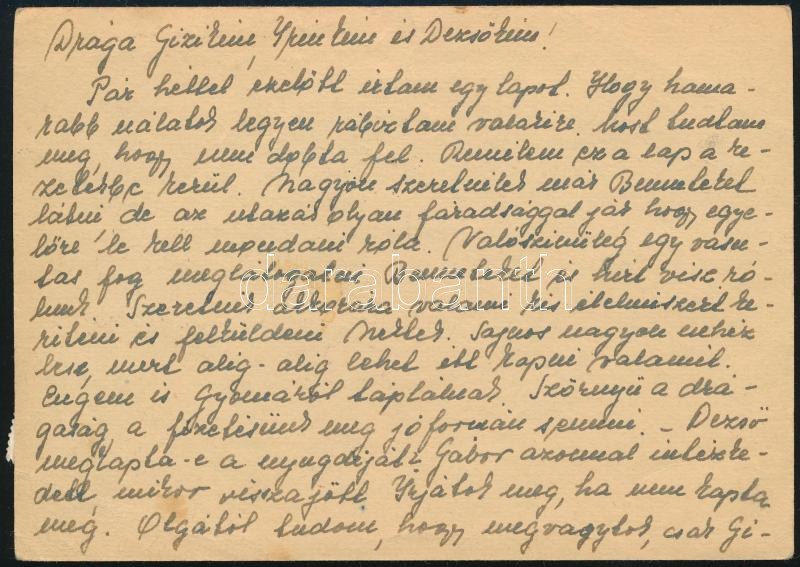 Drága Gizikém, Irénkém és Dezsőkém!
Pár héttel ezelőtt írtam egy lapot. Hogy hama-
rabb nálatok legyen rábíztam valakire. Most tudtam
meg, hogy nem dobta fel. Remélem ez a lap a ke-
zetekbe kerül. Nagyon szeretnélek már Benneteket
látni de az utazás olyan fáradsággal jár hogy egye-
lőre le kell mondani róla. Valószinűleg egy vasu-
tas fog meglátogatni Benneteket és hírt visz ró-
lunk. Szeretnék akkorára valami kis élelmiszert ke-
ríteni és felküldeni Nektek. Sajnos nagyon nehéz
lesz, mert alig-alig lehet itt kapni valamit.
Engem is Gyomáról táplálnak. Szörnyű a drá-
gaság a fizetésünk meg jóformán semmi. - Dezső
megkapta-e a nyugdíját? Gábor azonnal intézke-
dett mikor visszajött Írjátok meg, ha nem kapta
meg. Olgától tudom, hogy megvagytok, csak Gi-
darabanth.com